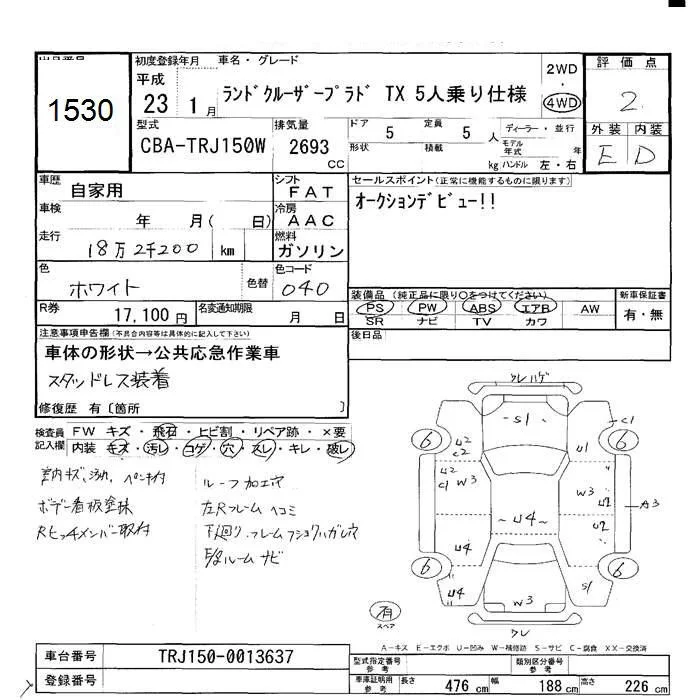 1530
初度登録年月
車名・グレード
平成
23 1月
ランドクルーザープラド TX 5人乗り仕様
2WD
・
4WD
評価点
2
外装 内装
E D
型式
CBA-TRJ150W
排気量
2693 CC
ドア 5
定員 5 人
形状
積載 kg
ディーラー・並行
モデル年式 年
ハンドル 左・右
車歴
自家用
シフト
FAT
車検
年 月( 日)
冷房
AAC
走行
18万2千200 km
燃料
ガソリン
色
ホワイト
色替
色コード
040
R券
17,100円
名変通知期限
月 日
セールスポイント(正常に機能するものに限ります)
オークションデビュー!!
装備品(純正品に限り○をつけてください)
PS PW ABS エアB AW
SR ナビ TV カワ
新車保証書
有・無
後日品
注意事項申告欄(不具合内容等は具体的に記入して下さい)
車体の形状→公共応急作業車
スタッドレス装着
修復歴 有〔箇所 〕
検査員記入欄
FW キズ・飛石・ヒビ割・リペア跡・×要
内装 キズ・汚レ・コゲ・穴・スレ・キレ・破レ
ルーフ加工穴
ボデー看板塗抹
左Rフレームヘコミ
Rヒッチメンバー取付
下廻り、フレームフショクハガレ有
ルームサビ
クレハゲ
S1
C1
6
6
U2
C2
U2
C1
W3
U1
W3
U2
U2
A3
~U4~
U4
6
6
U4
S1
W3
クレ
有
スペア
A-キズ E-エクボ U-凹み W-補修跡 S-サビ C-腐食 XX-交換済
車台番号
TRJ150-0013637
登録番号
型式指定番号
参考
類別区分番号
参考
車庫証明用
参考
長さ 476 cm
幅 188 cm
高さ 226 cm